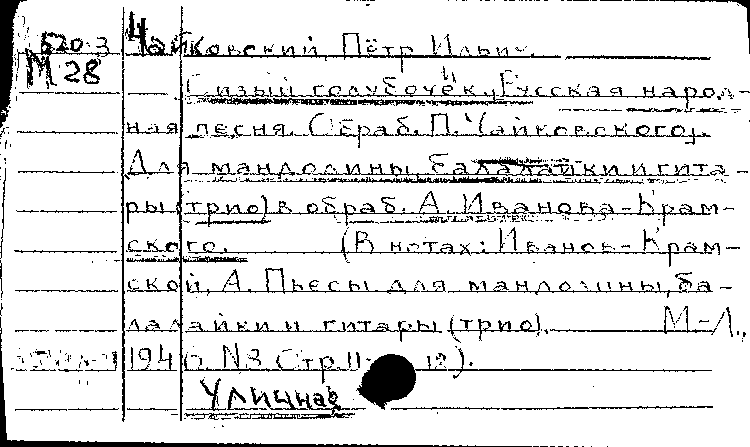 620.3 Чайковский, Пётр Ильич.
М 28
Сизый голубочек. Русская народ-
ная песня. Обраб. П. Чайковского.
Для мандолины, балалайки и гита-
ры (трио) в обраб. А. Иванова-Крам-
ского. (В нотах: Иванов-Крам-
ской, А. Пьесы для мандолины, ба-
лалайки и гитары (трио). М-Л.,
194 г. N3 Стр. 11- 12).
Уличная